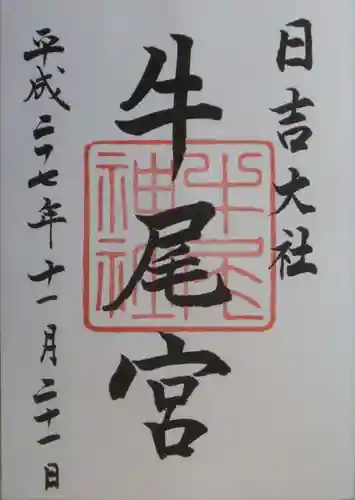 日吉大社
牛尾宮
牛尾
神社
平成二十七年十一月二十一日